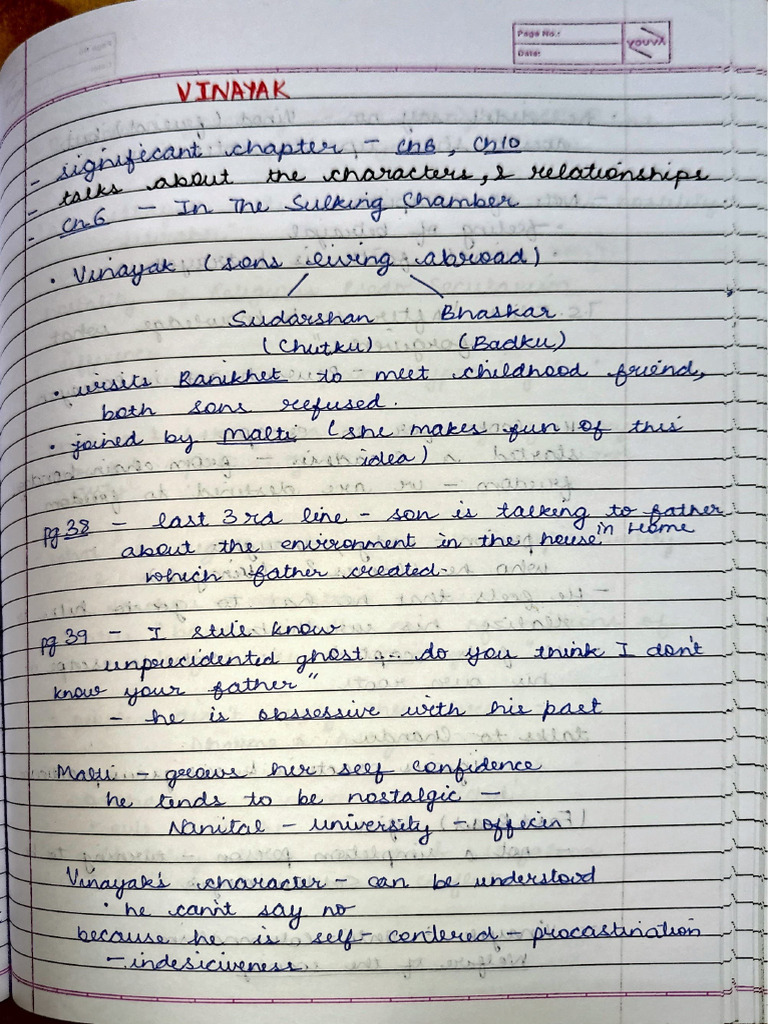 Page No.:
Date:
YOUVA
VINAYAK
- significant chapter - Ch6, Ch10
- talks about the characters, & relationships
- Ch 6 - In The Sulking Chamber
• Vinayak (sons living abroad)
Sudarshan Bhaskar
(Chutku) (Badku)
• visits Ranikhet to meet childhood friend,
both sons refused.
• joined by Malti (she makes fun of this
idea)
pg 38 - last 3rd line - son is talking to father
about the environment in the house in Home
which father created.
pg 39 - I still know
unprecidented ghost... do you think I don't
know your father"
- he is obssessive with his past
Malti - grows her self confidence
he tends to be nostalgic -
Nanital - university - officer
Vinayak's character - can be understood
• he cann't say no
because he is self-centered - procastination
- indesiciveness.